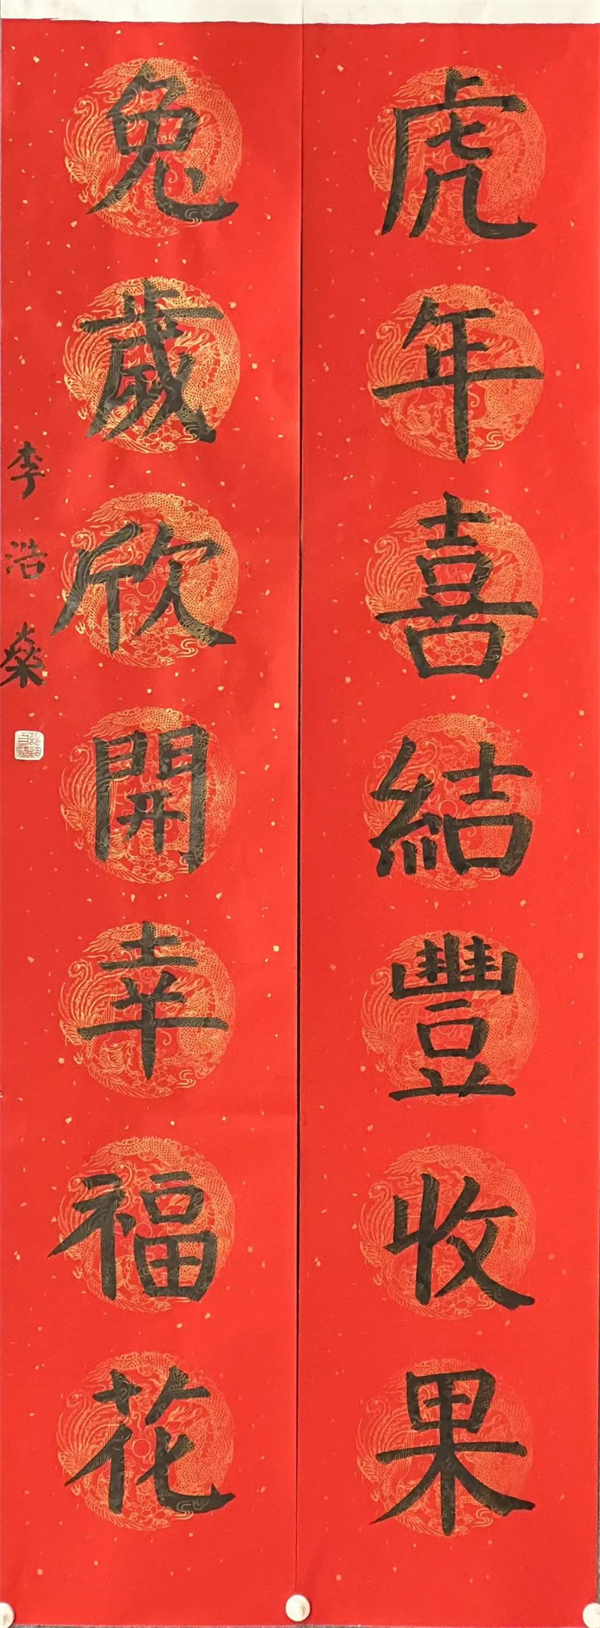 虎年喜結豐收果
兔歲欣開幸福花
李浩燊